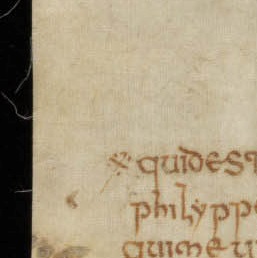 quidest
philyppe
quimeu